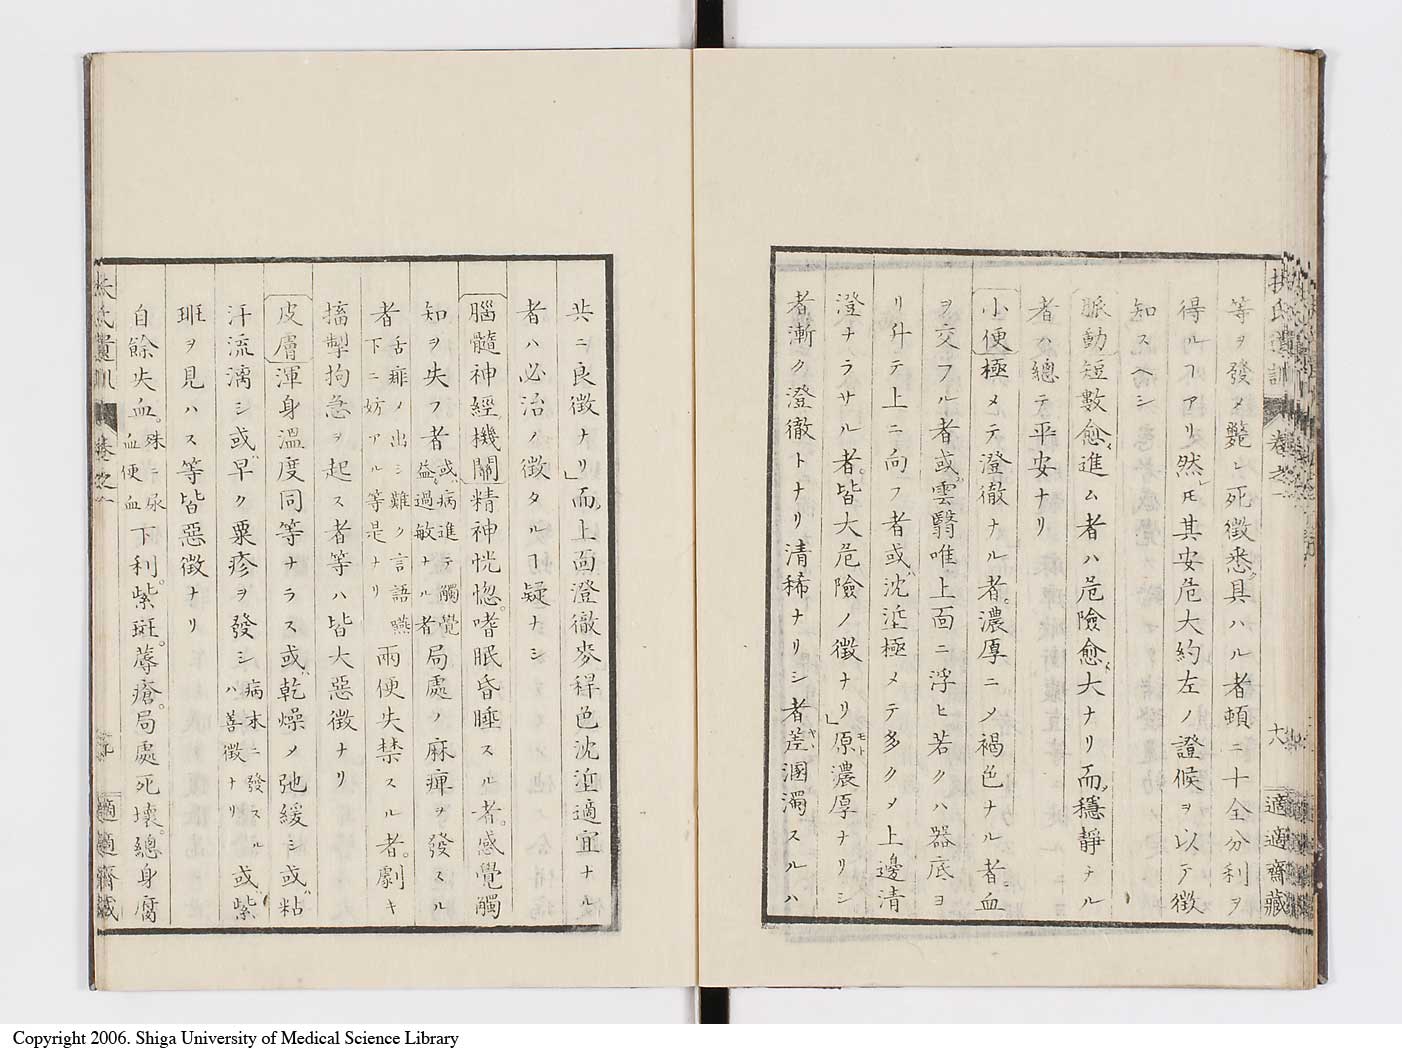 扶氏遺訓 卷之一 十八 適適齋藏
等ヲ發メ斃レ死徵悉具ハル者頓ニ十全分利ヲ
得ルヿアリ然レ𪜈其安危大約左ノ證候ヲ以テ徵
知スヘシ
脈動短數愈進ム者ハ危險愈大ナリ而穩靜ナル
者ハ總テ平安ナリ
小便極メテ澄徹ナル者。濃厚ニメ褐色ナル者。血
ヲ交フル者或雲翳唯上面ニ浮ヒ若クハ器底ヨ
リ升テ上ニ向フ者或沈垽極メテ多クメ上邊清
澄ナラサル者。皆大危險ノ徵ナリ」原濃厚ナリシ
者漸ク澄徹トナリ清稀ナリシ者差溷濁スルハ
共ニ良徵ナリ」而上面澄徹麥稈色沈垽適宜ナル
者ハ必治ノ徵タルヿ疑ナシ
腦髓神經機關精神恍惚。嗜眠昏睡スル者。感覺觸
知ヲ失フ者或病進テ觸覺益過敏ナル者局處ノ麻痺ヲ發スル
者舌難ノ出シ難ク言語嚥下ニ妨アル等是ナリ兩便失禁スル者。劇キ
搐掣拘急ヲ起ス者等ハ皆大惡徵ナリ
皮膚渾身溫度同等ナラス或乾燥メ弛緩シ或粘
汗流漓シ或早ク粟疹ヲ發シ病末ニ發スルハ善徵ナリ或紫
斑ヲ見ハス等皆惡徵ナリ
自餘失血。殊ニ尿血便血下利。紫斑。蓐瘡。局處死壞。總身腐
扶氏遺訓 卷之一 適適齋藏
Copyright 2006. Shiga University of Medical Science Library